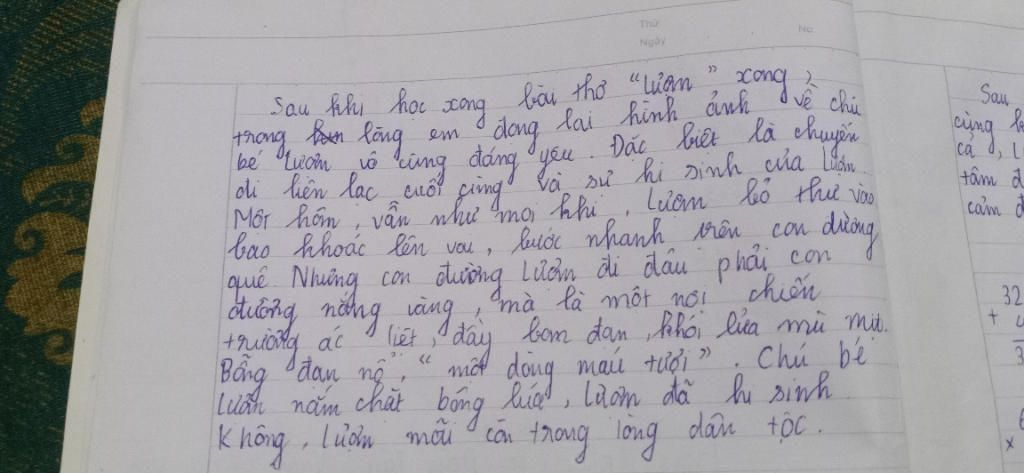 Thứ
Ngày
No
Sau khi học xong bài thơ "Lượm" xong,
trong lòng em đọng lại hình ảnh về chú
bé Lượm vô cùng đáng yêu. Đặc biệt là chuyến
đi liên lạc cuối cùng và sự hi sinh của Lượm.
Một hôm, vẫn như mọi khi, Lượm bỏ thư vào
bao khoác lên vai, bước nhanh trên con đường
quê. Nhưng con đường Lượm đi đâu phải con
đường nắng vàng, mà là một nơi chiến
trường ác liệt, đầy bom đạn, khói lửa mù mịt.
Bỗng đạn nổ, "một dòng máu tươi". Chú bé
Lượm nắm chặt bông lúa, Lượm đã hi sinh.
Không, Lượm mãi còn trong lòng dân tộc.
Sau
cùng
cả, L
tâm đ
cảm đ
32
+
3
x